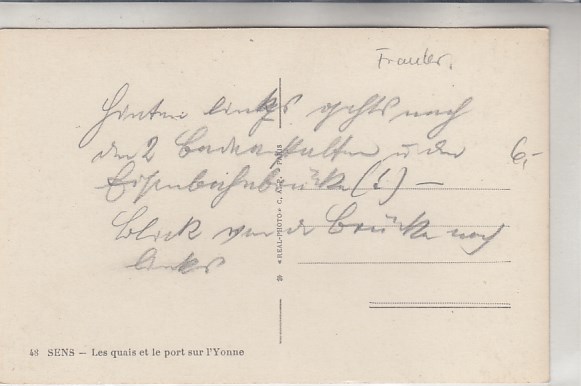 Frankr.
Hinten links gehts nach
den 2 Badeanstalten u der
Eisenbahnbrücke (!) —
6,-
Blick von der Brücke nach
links
« REAL-PHOTO » C. A. P. - PARIS
48 SENS — Les quais et le port sur l'Yonne